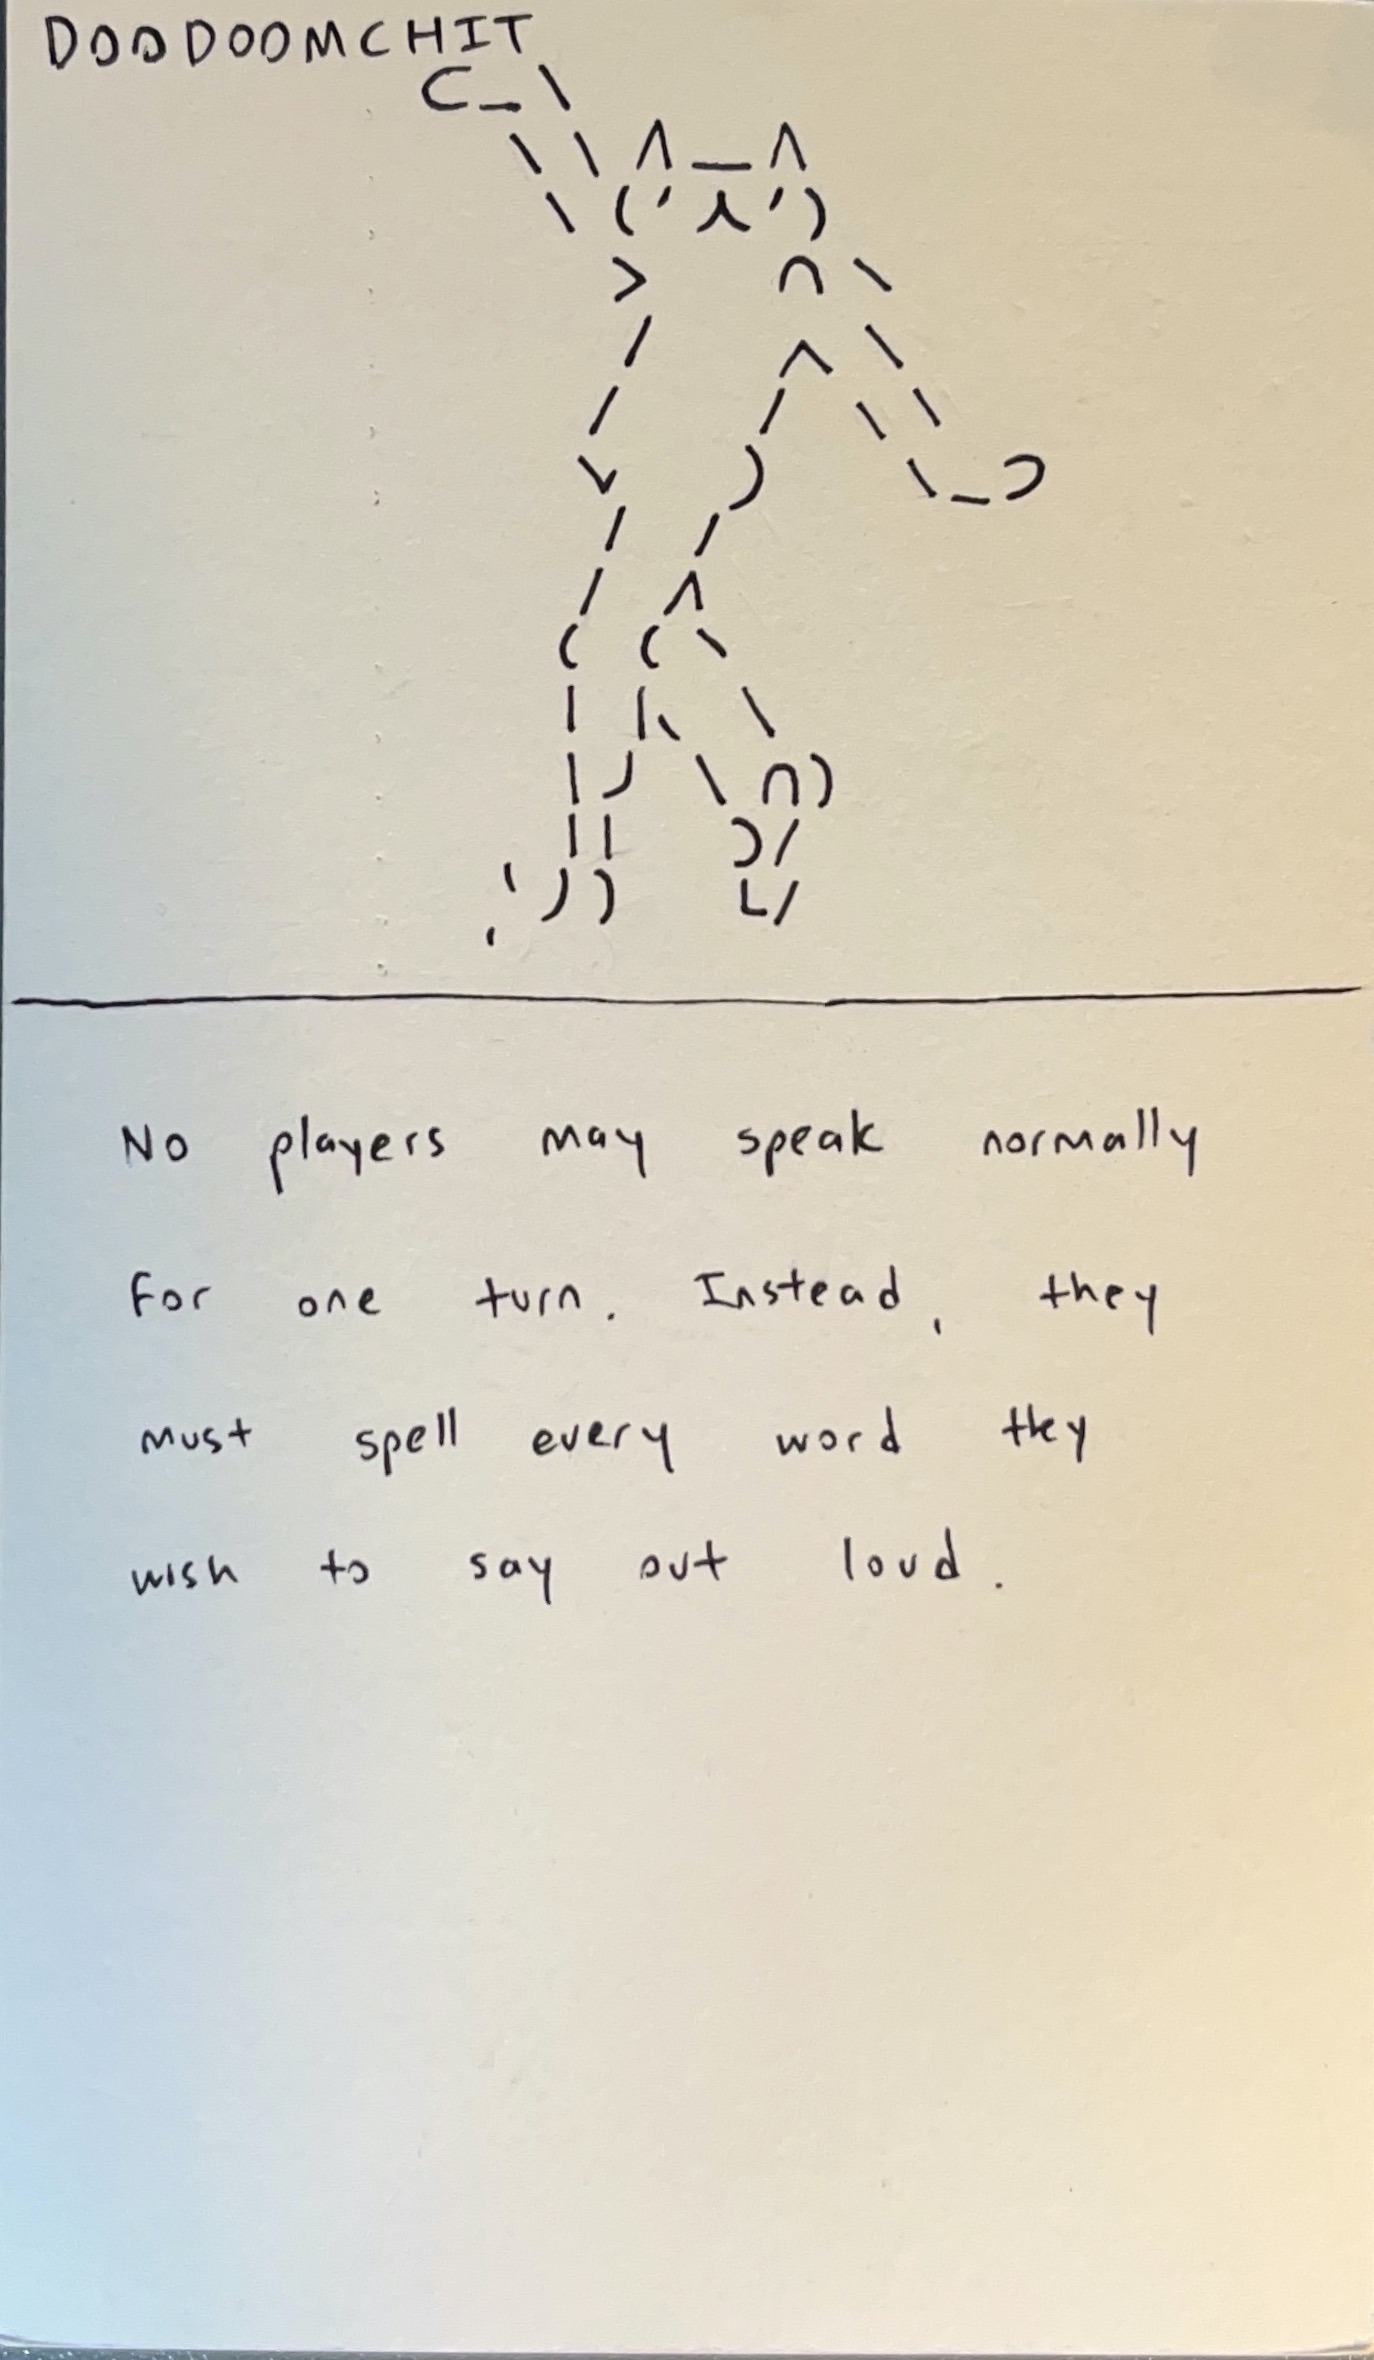 DOODOOMCHIT
No players may speak normally
for one turn. Instead, they
must spell every word they
wish to say out loud.